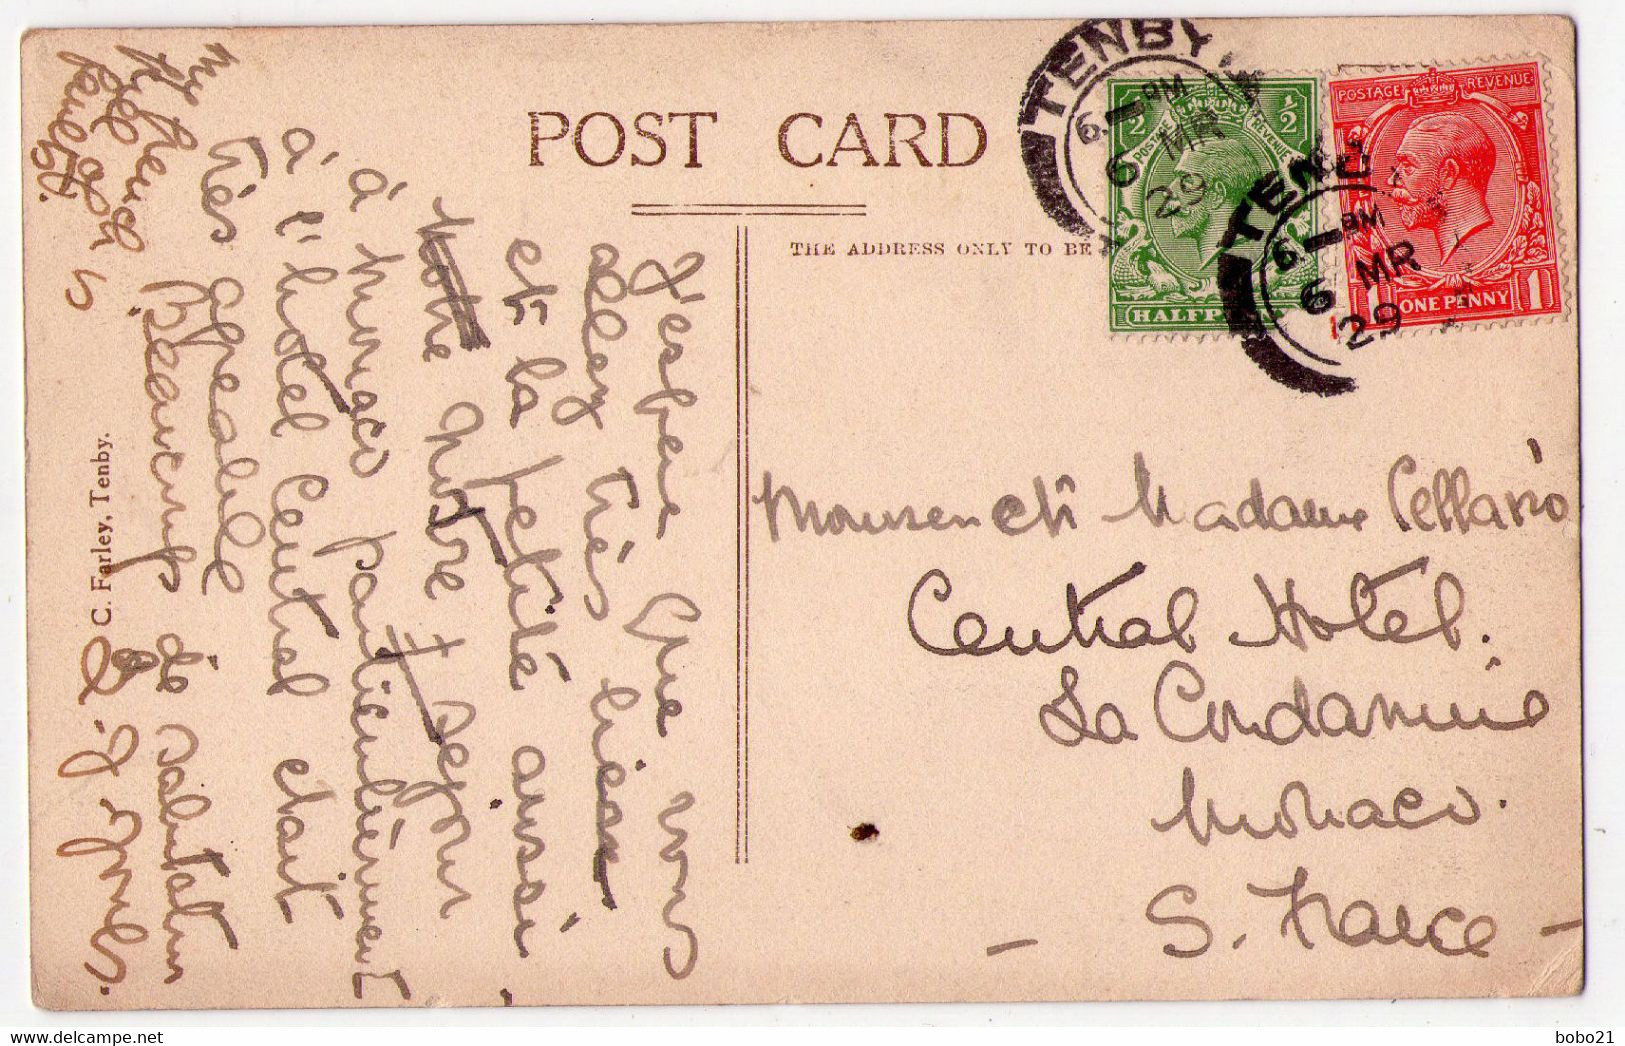 POST CARD
THE ADDRESS ONLY TO BE
TENBY
6 - PM
6 MR
29
TENBY
6 - PM
6 MR
29
½ ½
POSTAGE REVENUE
HALFPENNY
POSTAGE REVENUE
1 ONE PENNY 1
J'espère que vous
allez très bien
et la petite aussi
Notre séjour
à Monaco particulièrement
à l'hotel Central etait
très agreable
Beaucoup de
C. Farley, Tenby.
My French
is
Madame Cellario
Central Hotel.
La Condamine
Monaco.
- S. France -
bobo21